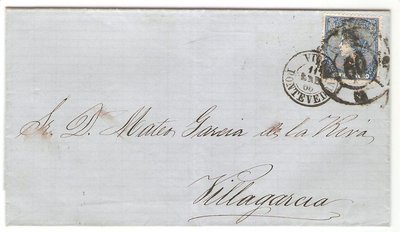 VIGO
PONTEVEDRA
60
Sr. D. Mateo Garcia de la Riva
Villagarcia